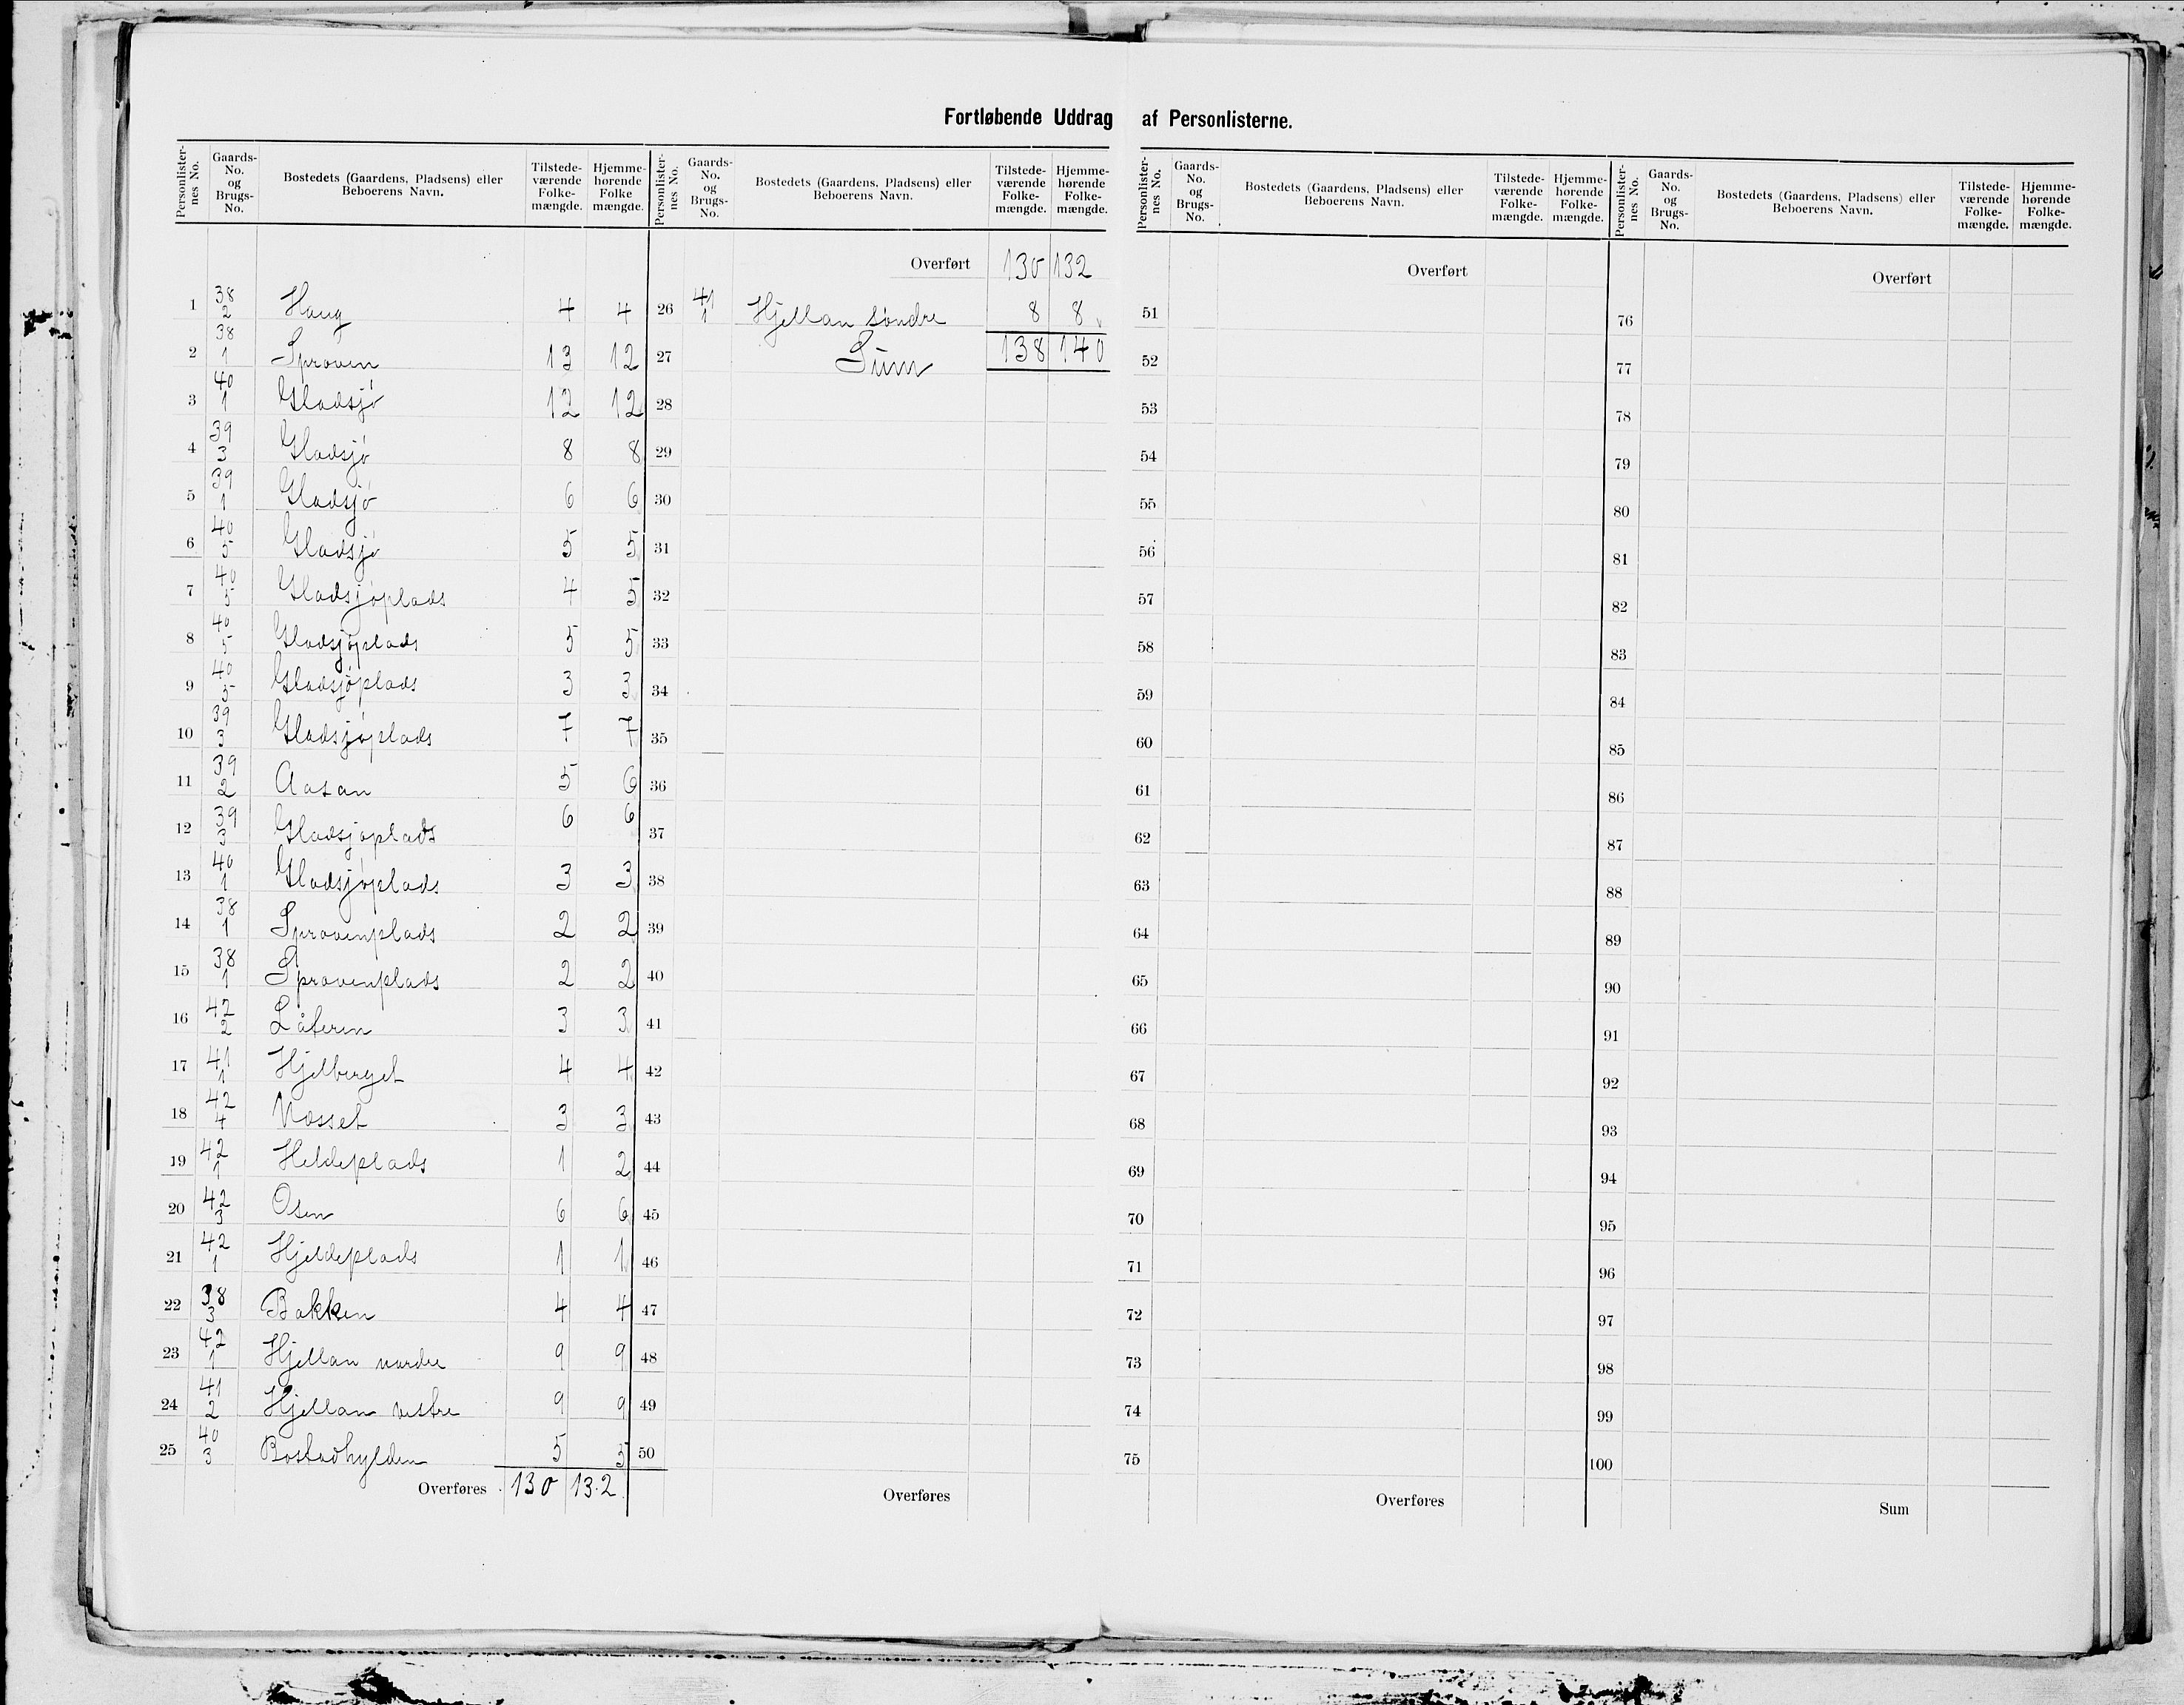 Fortløbende Uddrag af Personlisterne.
Personlister-nes No. | Gaards-No. og Brugs-No. | Bostedets (Gaardens, Pladsens) eller Beboerens Navn. | Tilstede-værende Folke-mængde. | Hjemme-hørende Folke mængde.
1 38/2 Haug 4 4
2 38/1 Sproven 13 12
3 40/1 Gladsjø 12 12
4 39/3 Gladsjø 8 8
5 39/1 Gladsjø 6 6
6 40/5 Gladsjø 5 5
7 40/5 Gladsjøplads 4 5
8 40/5 Gladsjøplads 5 5
9 40/5 Gladsjøplads 3 3
10 39/3 Gladsjøplads 7 7
11 39/2 Aasan 5 6
12 39/3 Gladsjøplads 6 6
13 40/1 Gladsjøplads 3 3
14 38/1 Sprovenplads 2 2
15 38/1 Sprovenplads 2 2
16 42/2 Låteren 3 3
17 41/1 Hjelberget 4 4
18 42/4 Næsset 3 3
19 42/1 Heldeplads 1 2
20 42/3 Osen 6 6
21 42/1 Hjeldeplads 1 1
22 38/3 Bakken 4 4
23 42/1 Hjellan nordre 9 9
24 41/2 Hjellan vestre 9 9
25 40/3 Bostadhylden 5 5
Overføres 130 132
Personlister-nes No. | Gaards-No. og Brugs-No. | Bostedets (Gaardens, Pladsens) eller Beboerens Navn. | Tilstede-værende Folke-mængde. | Hjemme-hørende Folke-mængde.
Overført 130 132
26 41/1 Hjellan søndre 8 8
27 Sum 138 140
28
29
30
31
32
33
34
35
36
37
38
39
40
41
42
43
44
45
46
47
48
49
50
Overføres
Personlister-nes No. | Gaards-No. og Brugs-No. | Bostedets (Gaardens, Pladsens) eller Beboerens Navn. | Tilstede-værende Folke-mængde. | Hjemme-hørende Folke-mængde.
Overført
51
52
53
54
55
56
57
58
59
60
61
62
63
64
65
66
67
68
69
70
71
72
73
74
75
Overføres
Personlister-nes No. | Gaards-No. og Brugs-No. | Bostedets (Gaardens, Pladsens) eller Beboerens Navn. | Tilstede-værende Folke-mængde. | Hjemme-hørende Folke-mængde.
Overført
76
77
78
79
80
81
82
83
84
85
86
87
88
89
90
91
92
93
94
95
96
97
98
99
100
Sum